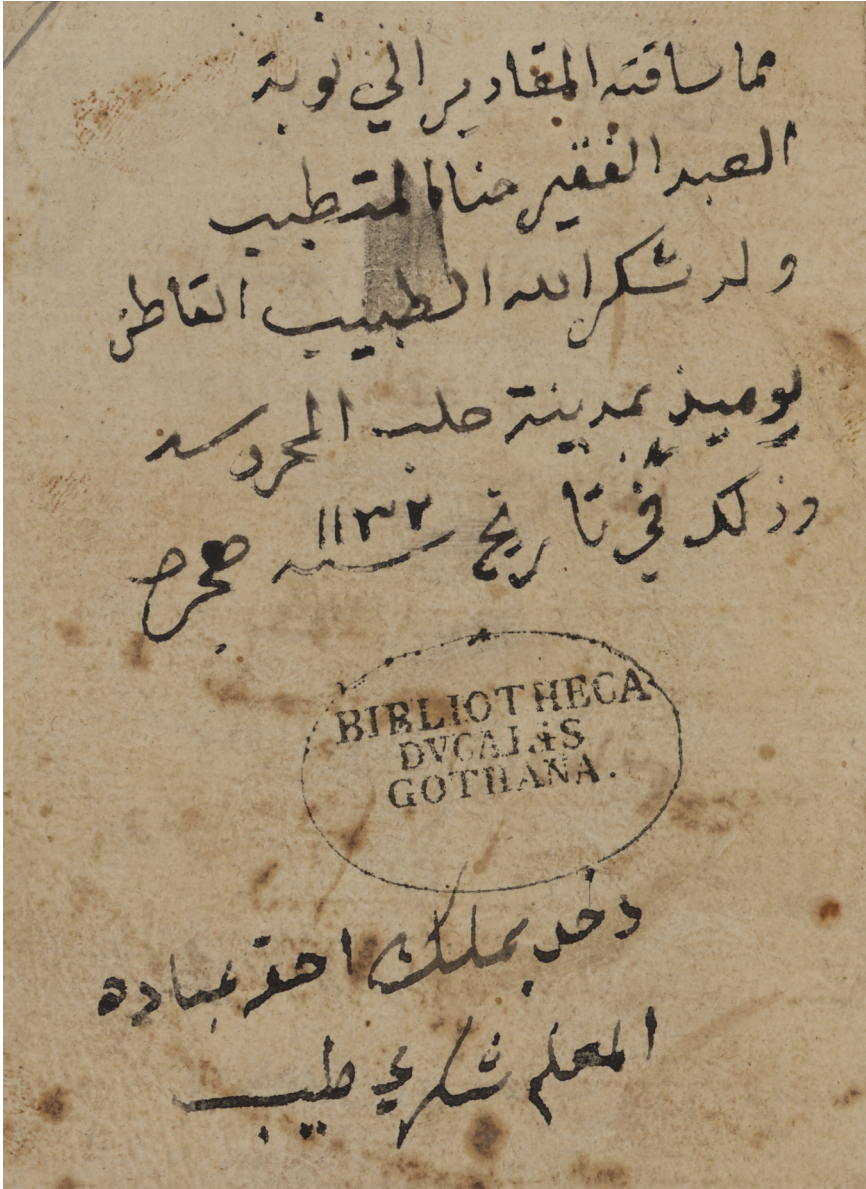 مما ساقته المقادير الي نوبة
العبد الفقير حنا المتطبب
ولد شكر الله الطبيب القاطن
يوميذ بمدينة حلب المحروسه
وذلك في تاريخ سنه ١١٣٢ هجريه
BIBLIOTHECA
DVCALIS
GOTHANA.
دخل بملك احقر عباده
المعلم شكري طبيب